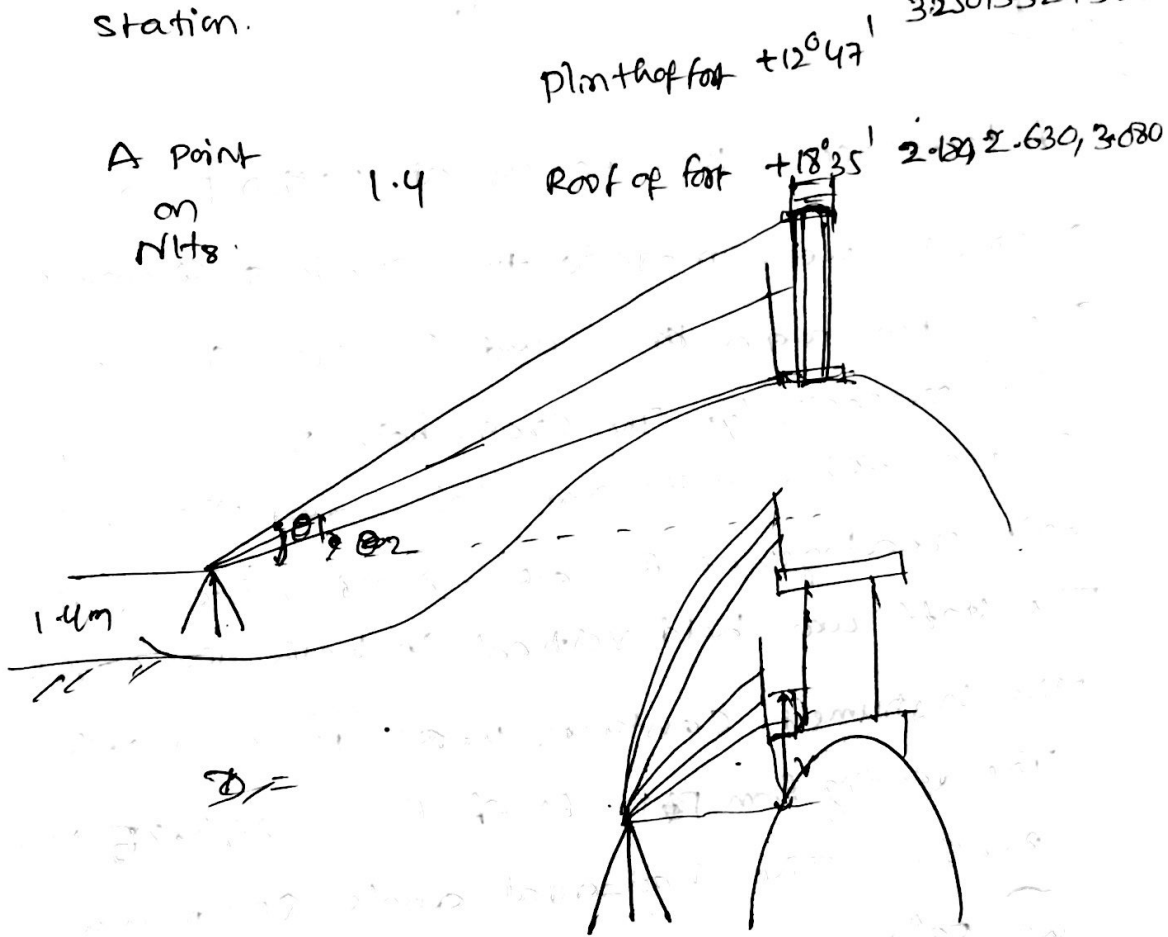 station.
Plinth of fort +12°47'
A point
on
NH8.
1.4
Roof of fort +18°35' 2.180, 2.630, 3.080
θ1, θ2
1.4m
D =